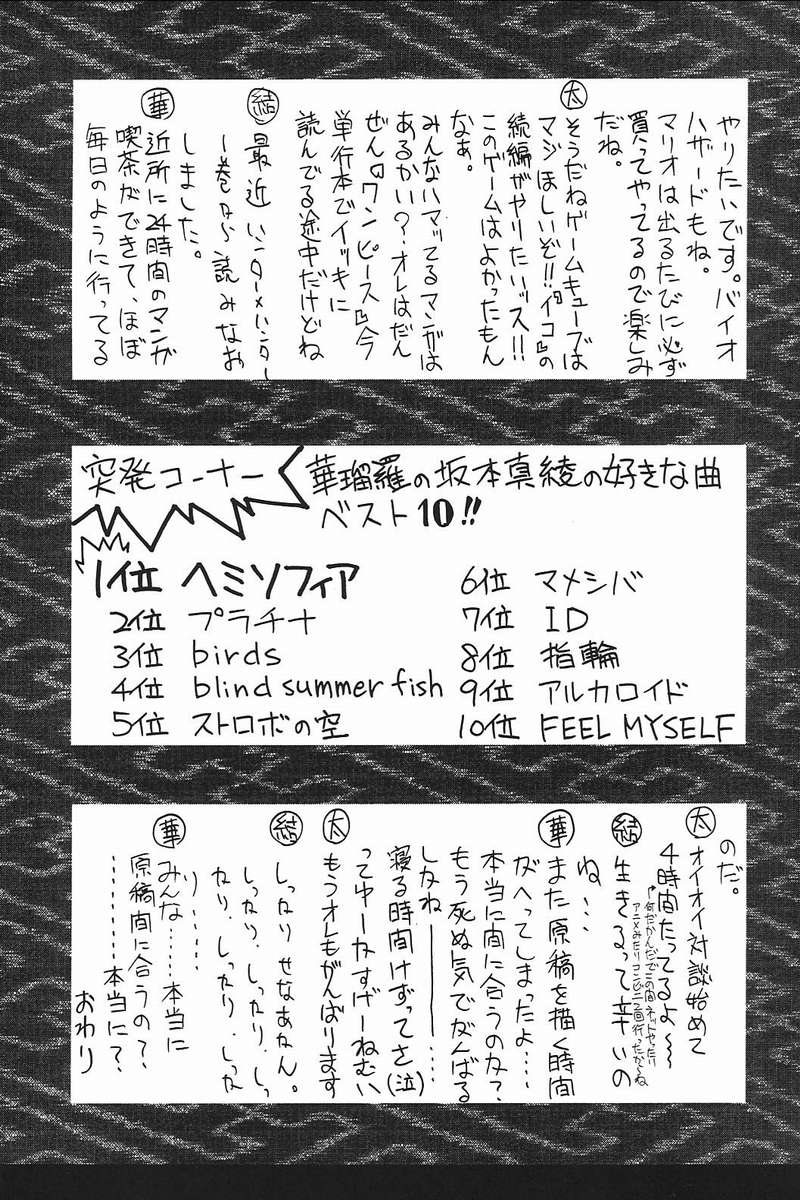 やりたいです。バイオ
ハザードもね。
マリオは出るたびに必ず
買ってやってるので楽しみ
だね。
太
そうだねゲームキューブでは
マジほしいぞ!!『イコ』の
続編がやりたいッス!!
このゲームはよかったもん
なぁ。
みんなハマッてるマンガは
あるかい?オレはだん
ぜん『ワンピース』今
単行本でイッキに
読んでる途中だけどね
結
最近ハンター×ハンター
1巻から読みなお
しました。
華
近所に24時間のマンガ
喫茶ができて、ほぼ
毎日のように行ってる
突発コーナー
華瑠羅の坂本真綾の好きな曲
ベスト10!!
1位 ヘミソフィア
2位 プラチナ
3位 birds
4位 blind summer fish
5位 ストロボの空
6位 マメシバ
7位 ID
8位 指輪
9位 アルカロイド
10位 FEEL MYSELF
のだ。
太
オイオイ対談始めて
4時間たってるよ〜〜
何だかんだでこの間ネットやったり
アニメみたりコンビニ2回行ったからね
結
生きるって辛いの
ね…
華
また原稿を描く時間
がへってしまったよ…
本当に間に合うのか?
もう死ぬ気でがんばる
しかね────…
寝る時間けずってさ(泣)
太
ってゆーかすげーねむい
もうオレもがんばります
結
しっかりせなあかん。
しっかり.しっかり.しっ
かり.しっかり.しっか
り……
華
みんな……本当に
原稿間に合うの?
………本当に?
おわり